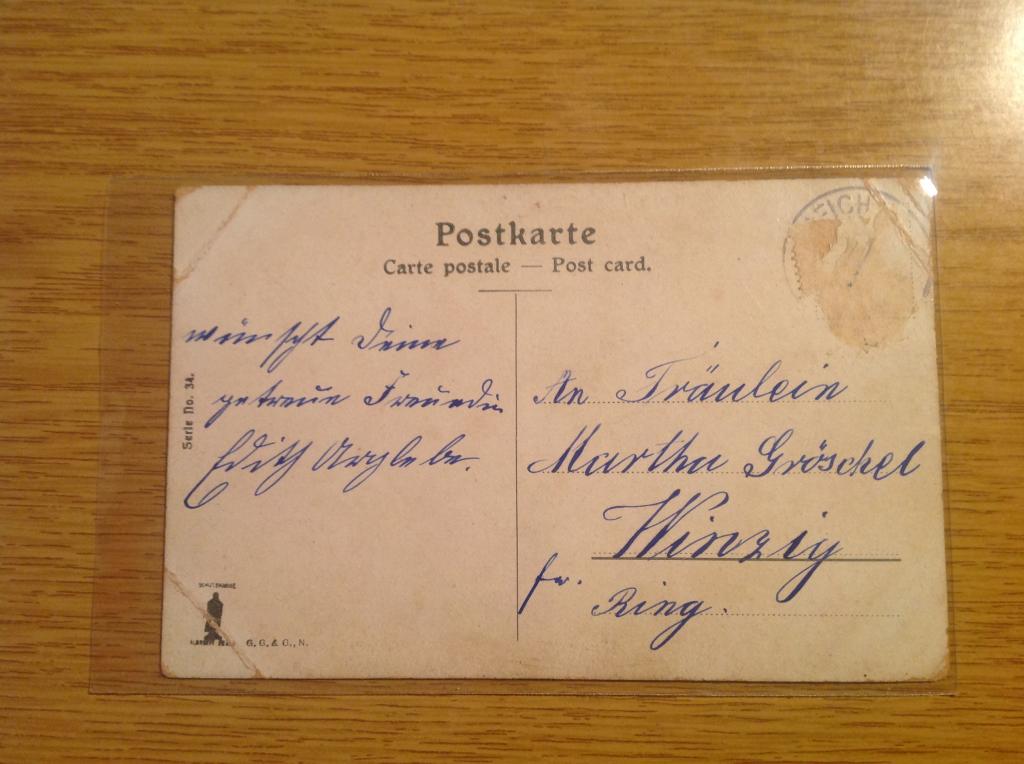 Postkarte
Carte postale — Post card.
EICH
wünscht Deine
getreue Freundin
Edith
Serie No. 34.
An Fräulein
Martha Gröschel
Winzig
fr.
Ring.
SCHUTZMARKE
G. G. & C., N.